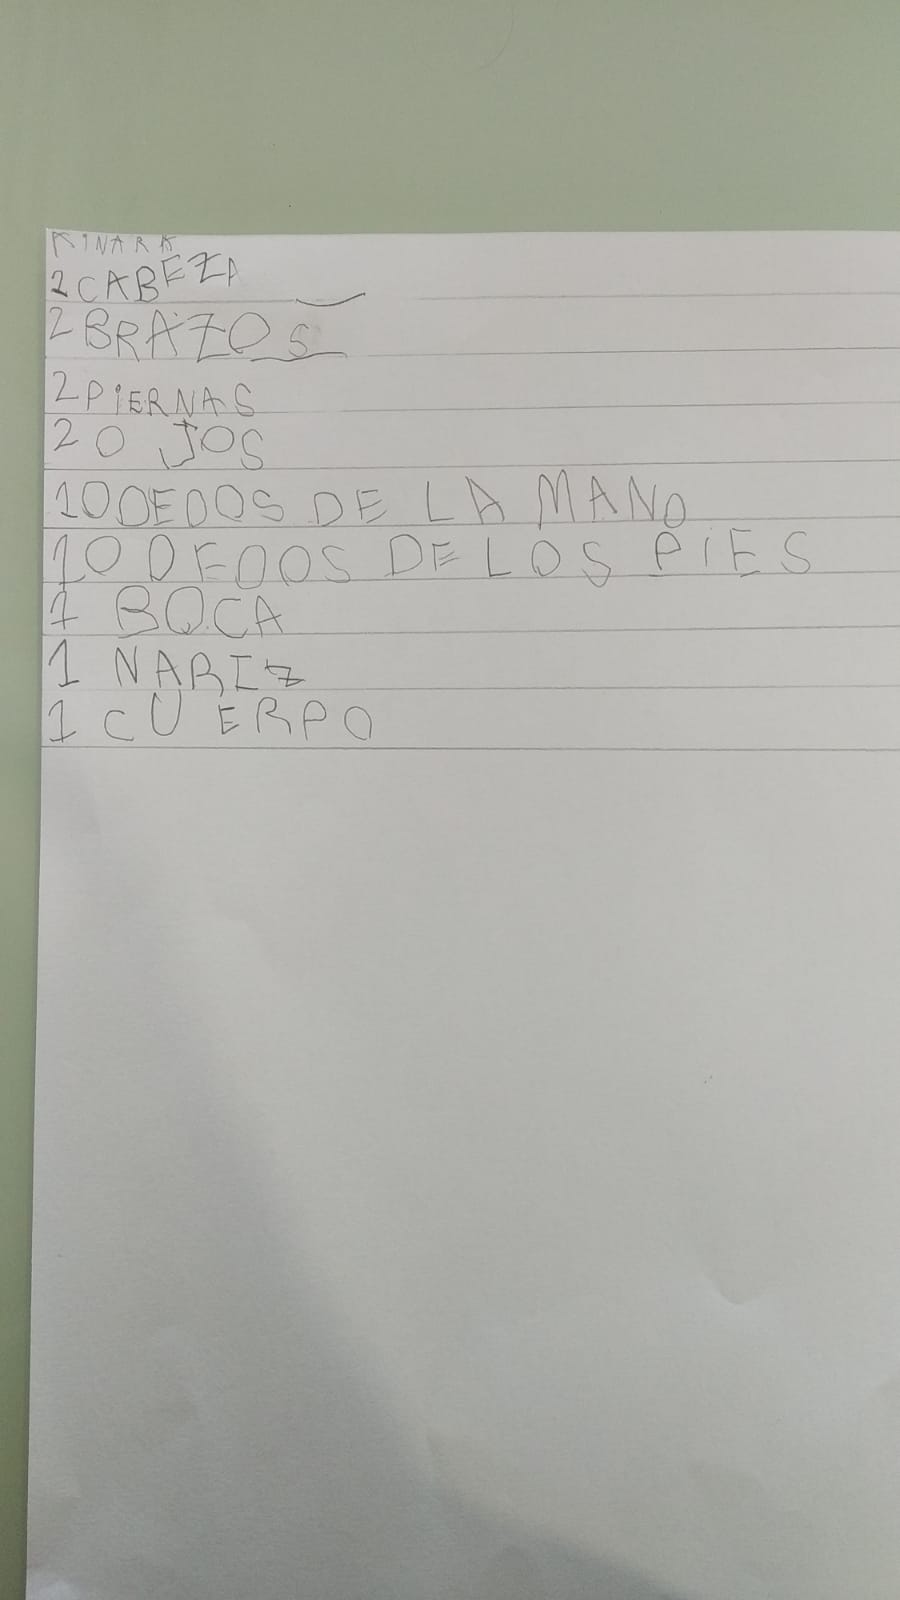 KINARA
2 CABEZA
2 BRAZOS
2 PIERNAS
2 OJOS
10 DEDOS DE LA MANO
10 DEDOS DE LOS PIES
1 BOCA
1 NARIZ
1 CUERPO